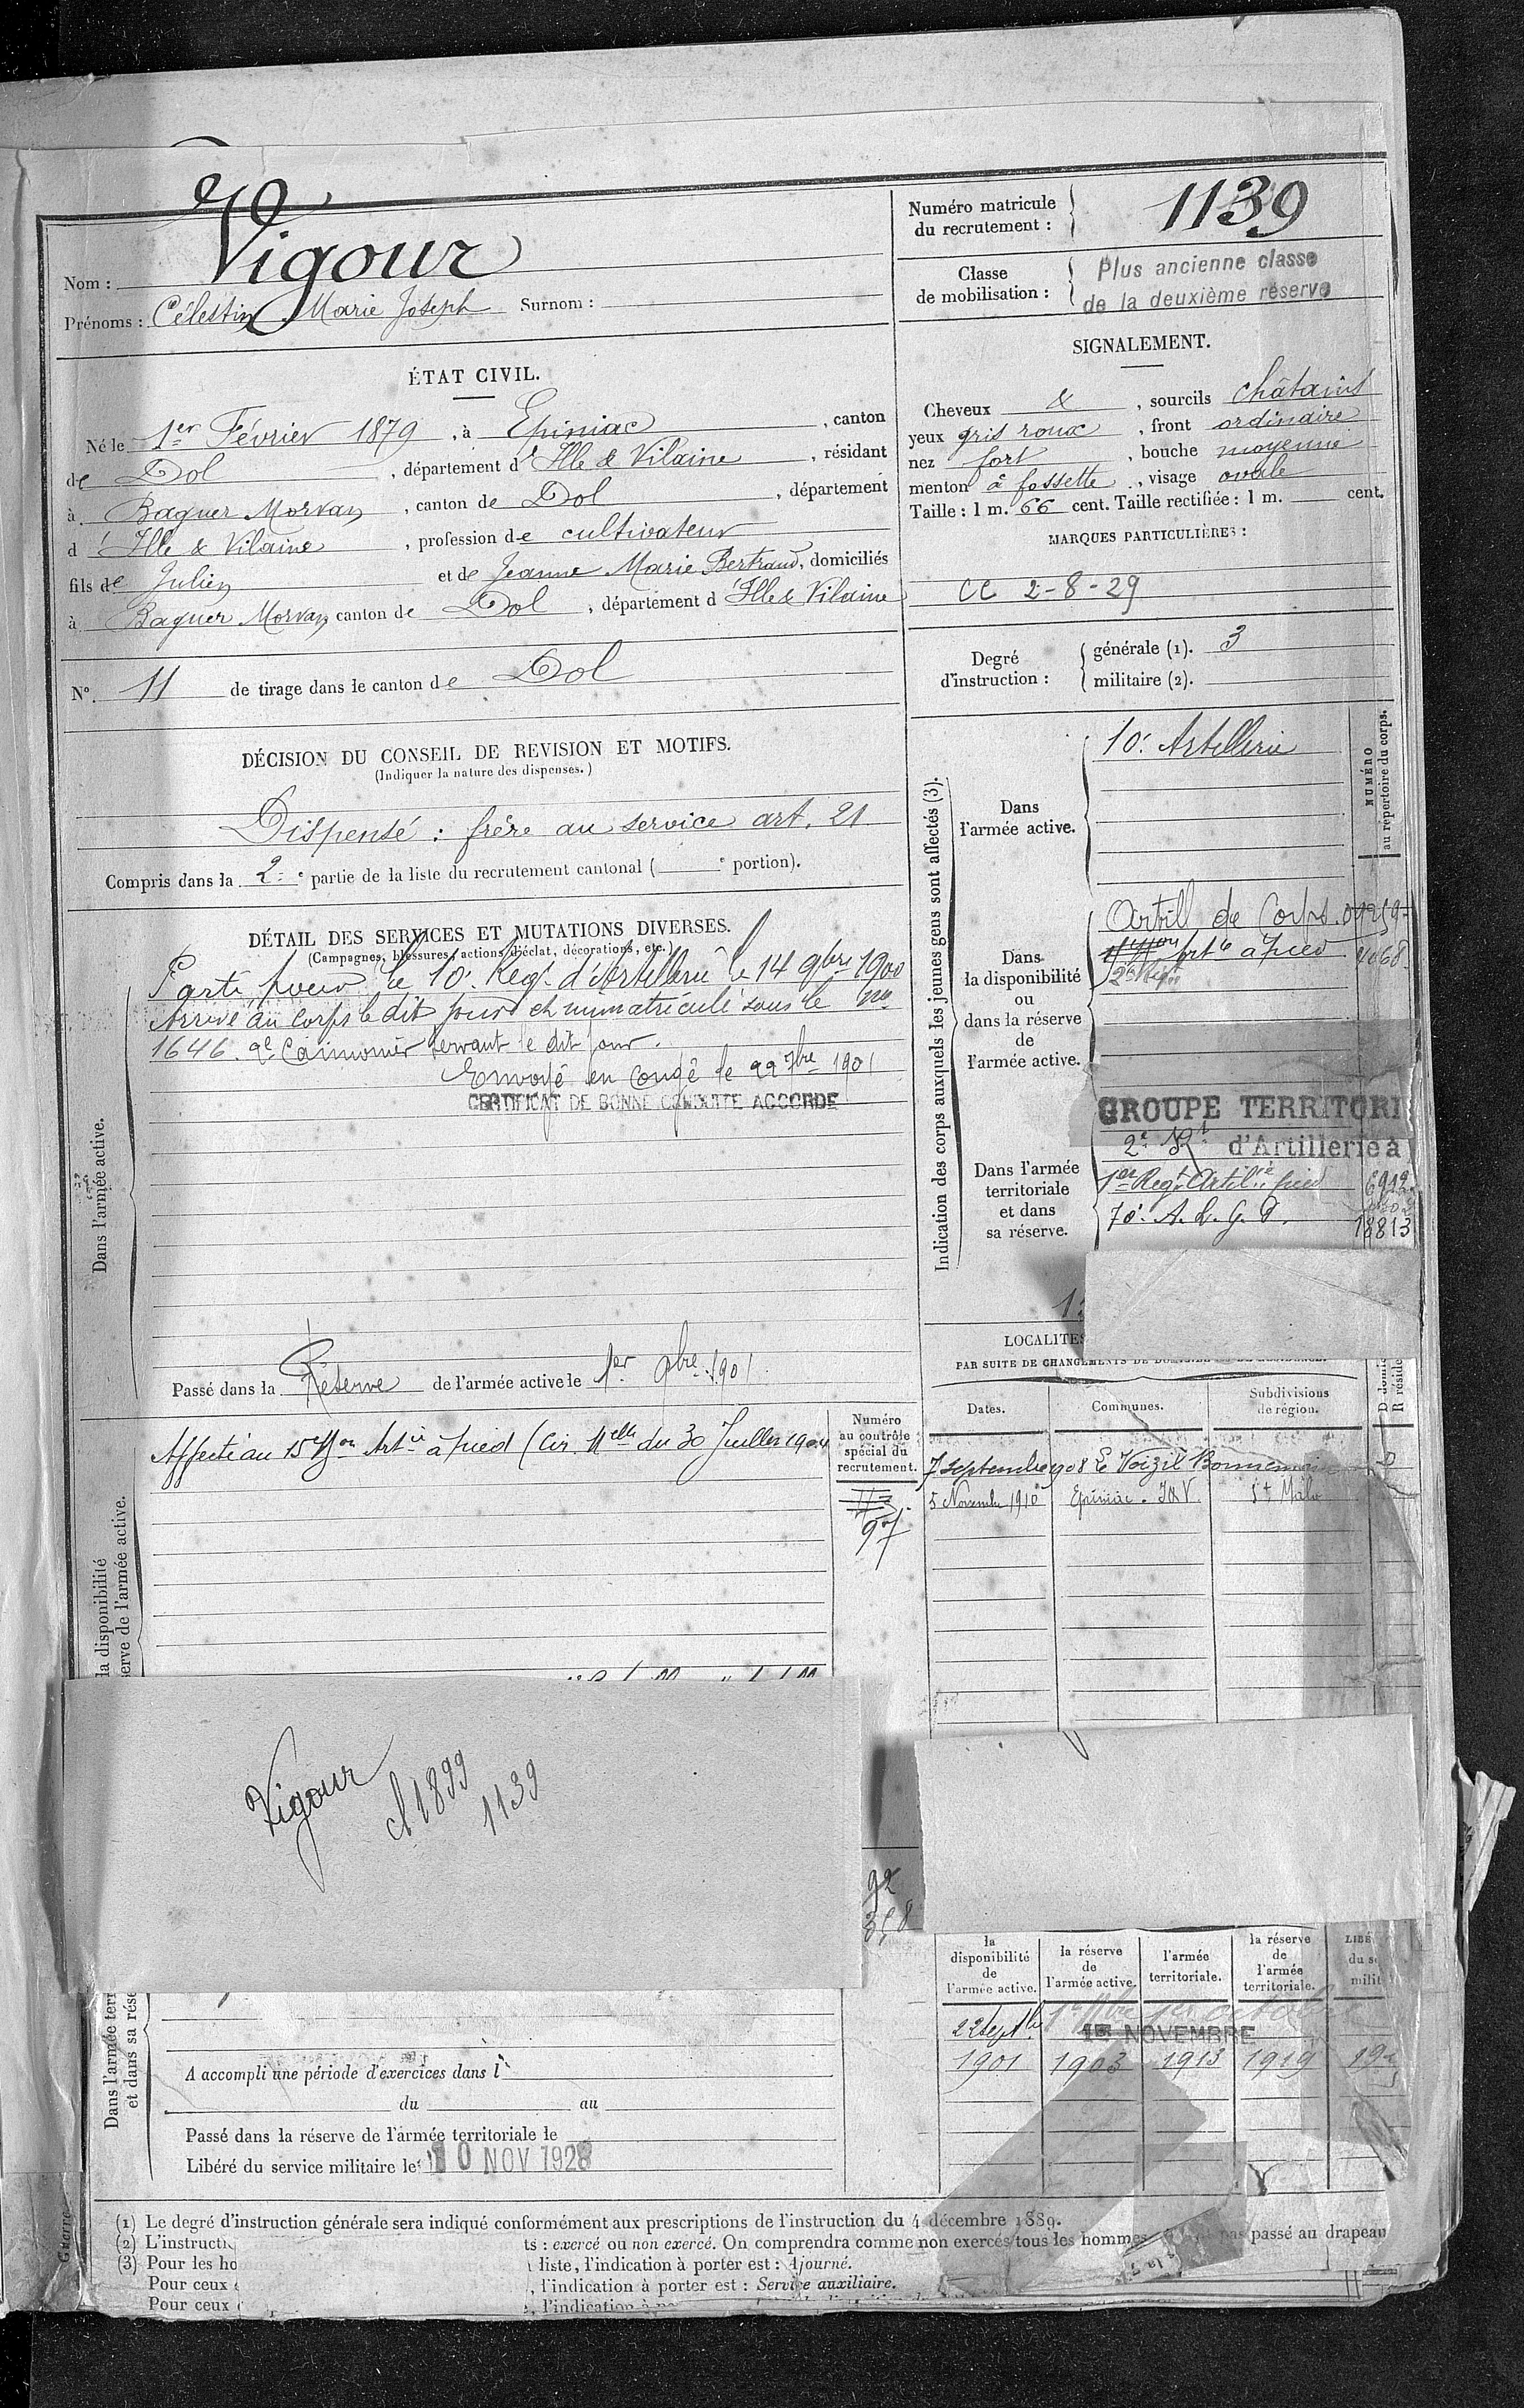 Nom : Vigour
Prénoms : Célestin Marie Joseph Surnom :
Numéro matricule
du recrutement :
1139
Classe
de mobilisation :
Plus ancienne classe
de la deuxième réserve
ÉTAT CIVIL.
Né le 1er Février 1879, à Epiniac, canton
de Dol, département d'Ille & Vilaine, résidant
à Baguer Morvan, canton de Dol, département
d'Ille & Vilaine, profession de cultivateur
fils de Julien et de Jeanne Marie Bertrand, domiciliés
à Baguer Morvan canton de Dol, département d'Ille & Vilaine
N° 11 de tirage dans le canton de Dol
SIGNALEMENT.
Cheveux &, sourcils châtains
yeux gris roux, front ordinaire
nez fort, bouche moyenne
menton à fossette, visage ovale
Taille : 1 m. 66 cent. Taille rectifiée : 1 m. cent.
MARQUES PARTICULIÈRES :
CC 2-8-29
Degré
d'instruction :
générale (1). 3
militaire (2).
DÉCISION DU CONSEIL DE REVISION ET MOTIFS.
(Indiquer la nature des dispenses.)
Dispensé : frère au service art. 21
Compris dans la 2e partie de la liste du recrutement cantonal ( e portion).
DÉTAIL DES SERVICES ET MUTATIONS DIVERSES.
(Campagnes, blessures, actions d'éclat, décorations, etc.)
Dans l'armée active.
Parti pour le 10e Regt d'Artillerie le 14 9bre 1900
Arrivé au Corps le dit jour et immatriculé sous le no
1646. 2e Canonnier servant le dit jour.
Envoyé en congé le 22 7bre 1901
CERTIFICAT DE BONNE CONDUITE ACCORDÉ
Passé dans la Réserve de l'armée active le 1er 9bre 1901
Indication des corps auxquels les jeunes gens sont affectés (3).
NUMÉRO
au répertoire du corps.
Dans
l'armée active.
10e Artillerie
Dans
la disponibilité
ou
dans la réserve
de
l'armée active.
Artill de Corps.
Artie à pied
Dans l'armée
territoriale
et dans
sa réserve.
GROUPE TERRITORI
d'Artillerie à
1er Regt Artilie à pied
70e A. L. G. P. 18813
LOCALITÉS
PAR SUITE DE CHANGEMENTS DE
Dates.
Communes.
Subdivisions
de région.
7 Septembre 1908 Le Voizil Bonnemain D
5 Novembre 1910 Epiniac. I&V. St Malo
la disponibilité
serve de l'armée active.
Affecté au 15e Bon Artie à pied (Cir. Mlle du 30 Juillet 1904
Numéro
au contrôle
spécial du
recrutement.
97
Vigour
cl 1899
1139
92
358
Dans l'armée terr
et dans sa rése
A accompli une période d'exercices dans l'
du au
Passé dans la réserve de l'armée territoriale le
Libéré du service militaire le 10 NOV 1928
la
disponibilité
de
l'armée active.
la réserve
de
l'armée active.
l'armée
territoriale.
la réserve
de
l'armée
territoriale.
LIBÉ
du se
milit
22 Septbre 1er octobre
1er NOVEMBRE
1901 1903 1913 1919
(1) Le degré d'instruction générale sera indiqué conformément aux prescriptions de l'instruction du 4 décembre 1889.
(2) L'instructi ts : exercé ou non exercé. On comprendra comme non exercés tous les hommes pas passé au drapeau
(3) Pour les ho liste, l'indication à porter est : Ajourné.
Pour ceux , l'indication à porter est : Service auxiliaire.
Pour ceux , l'indication
Guerre